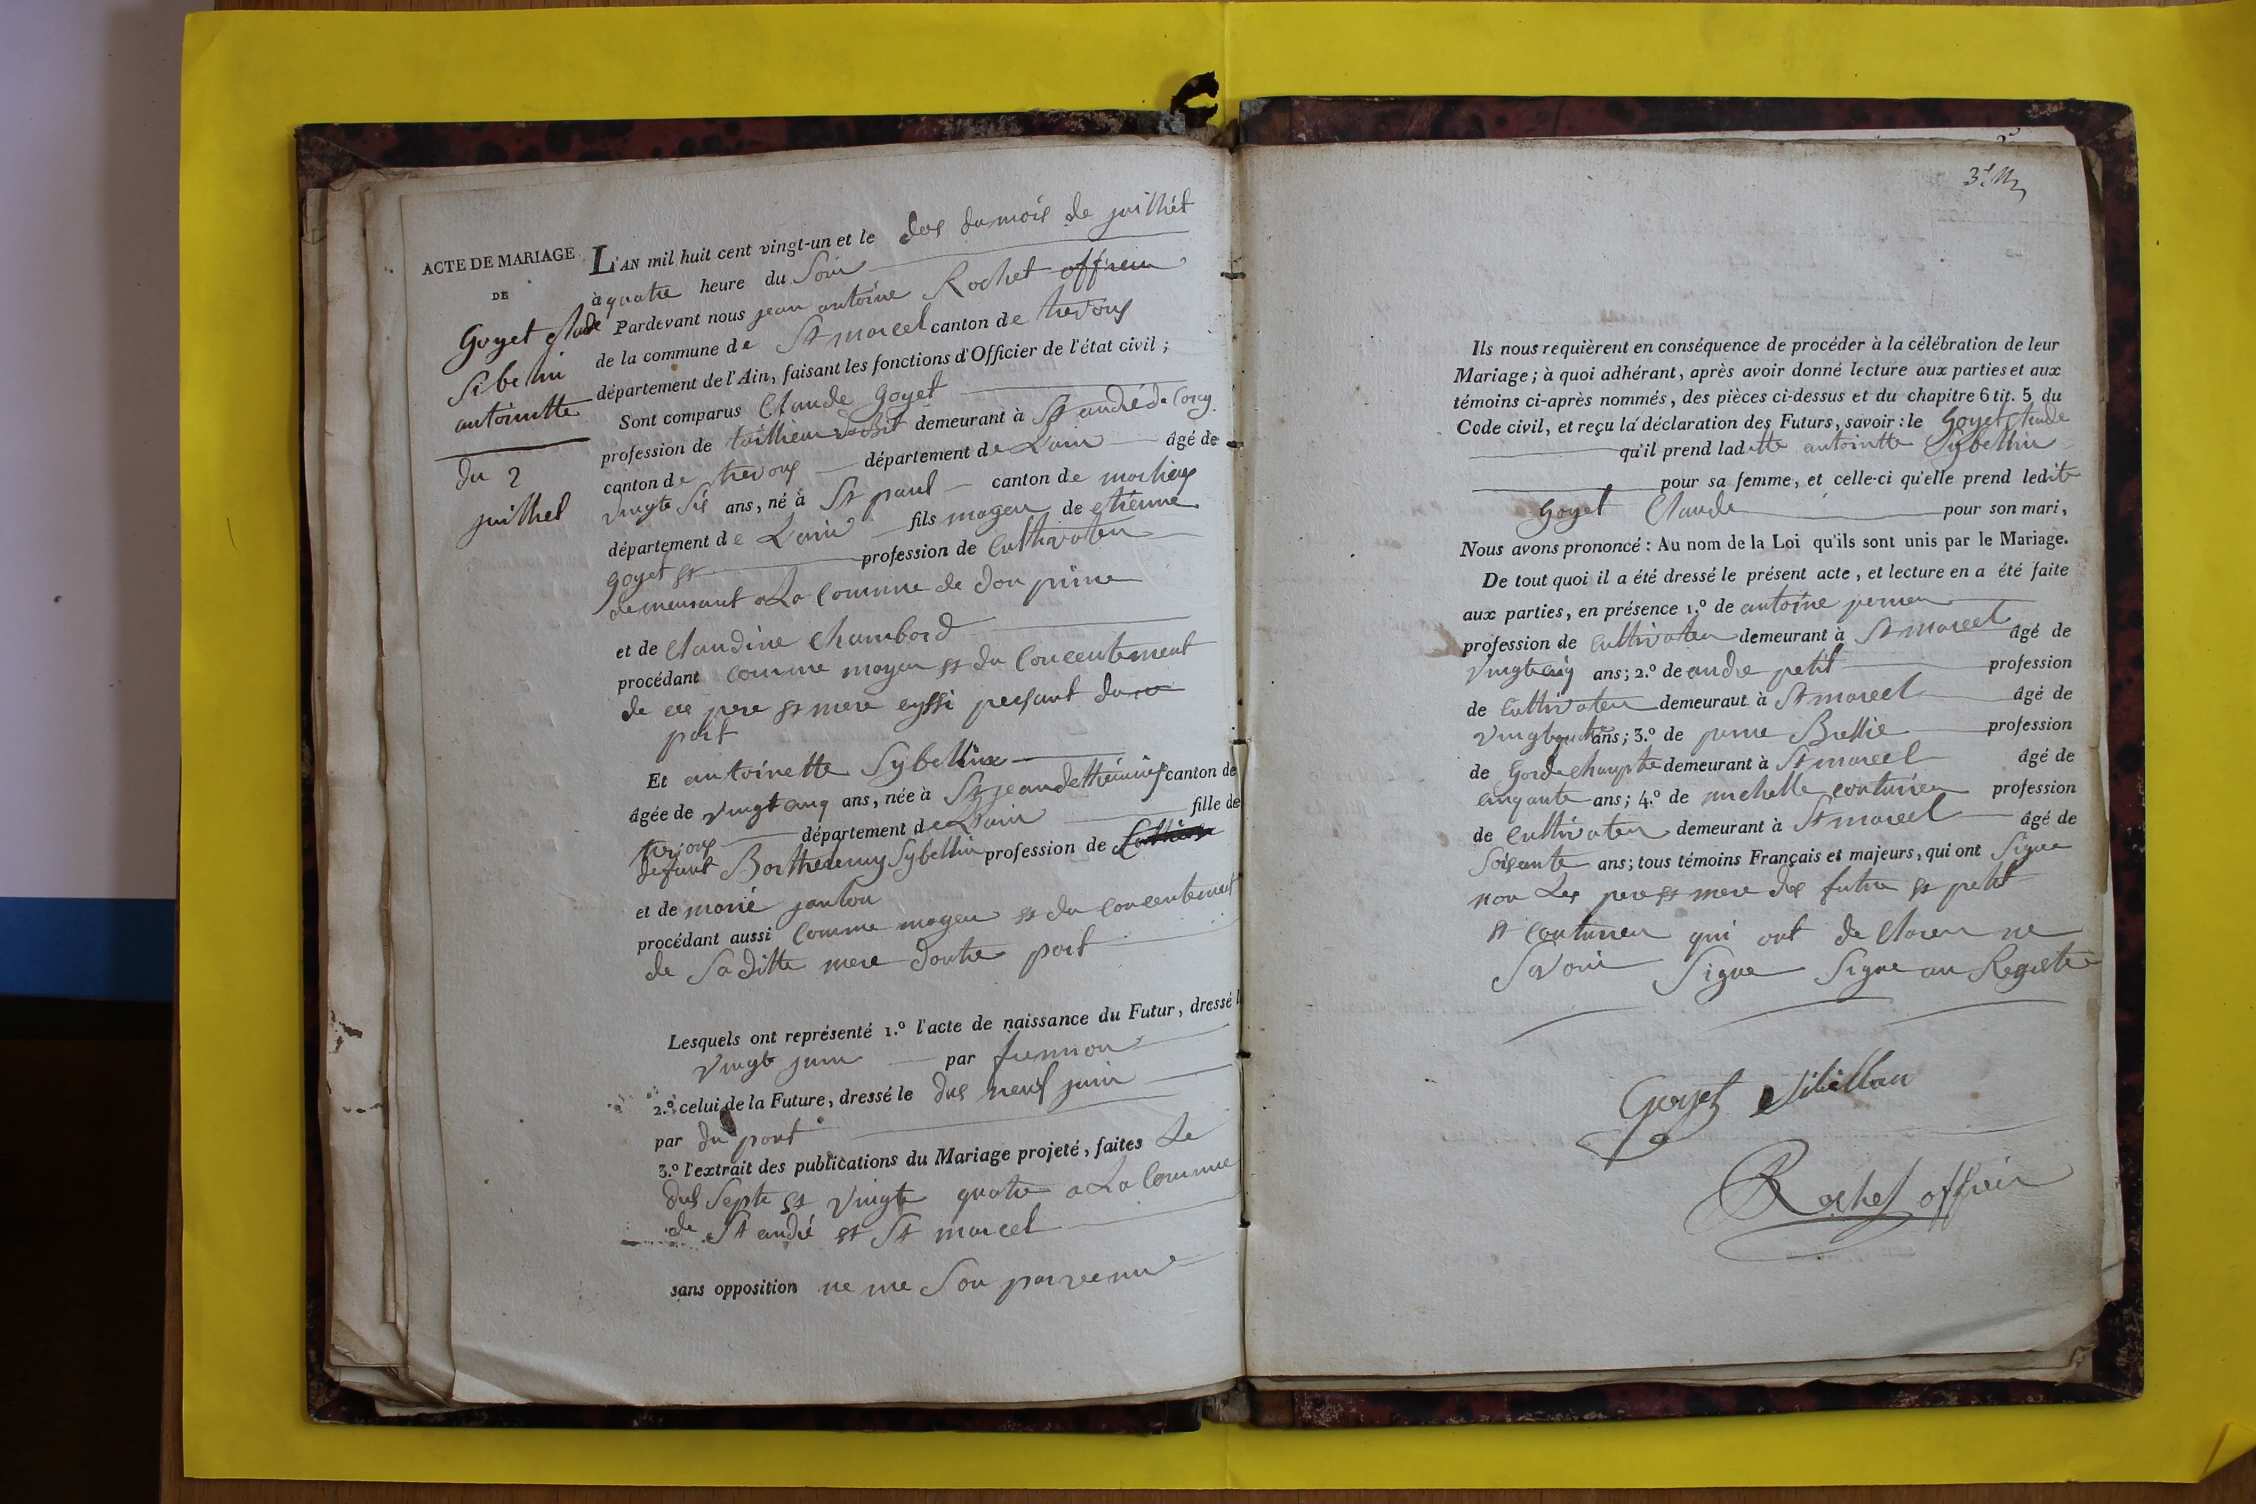 ACTE DE MARIAGE
DE
Goyet Claude
Sibelin
antoinette
du 2
juillet
L'AN mil huit cent vingt-un et le dos du mois de juillet
à quatre heure du Soir
Pardevant nous jean antoine Rochet officier
de la commune de St marcel canton de trevous
département de l'Ain, faisant les fonctions d'Officier de l'état civil ;
Sont comparus Claude Goyet
profession de taillieur dabit demeurant à St andré de Corcy
canton de trevous département de Lain âgé de
vingte Sis ans, né à St paul canton de
département de Lain fils mageur de etienne
goyet et profession de Cultivateur
demeurant a La Commune de don pirre
et de Claudine Chambard
procédant comme mageur et du Concentement
de ces pere et mere eyssi presant dune
part
Et antoinette Sybellin
âgée de vingt cinq ans, née à St jean de canton de
département de Lain fille de
defunt Barthelemy Sybellin profession de
et de marie janton
procédant aussi Comme mageur et du Concentement
de Sa ditte mere dautre part
Lesquels ont représenté 1.º l'acte de naissance du Futur, dressé l
vingt juin par
2.º celui de la Future, dressé le dis neuf juin
par du pont
3.º l'extrait des publications du Mariage projeté, faites Le
dis Septe et vingte quatre a La Commune
de St andré et St marcel
sans opposition ne me Son parvenue
3.
Ils nous requièrent en conséquence de procéder à la célébration de leur
Mariage ; à quoi adhérant, après avoir donné lecture aux parties et aux
témoins ci-après nommés, des pièces ci-dessus et du chapitre 6 tit. 5 du
Code civil, et reçu la déclaration des Futurs, savoir : le Goyet Claude
qu'il prend laditte antointte Sybellin
pour sa femme, et celle-ci qu'elle prend ledite
Goyet Claude pour son mari,
Nous avons prononcé : Au nom de la Loi qu'ils sont unis par le Mariage.
De tout quoi il a été dressé le présent acte, et lecture en a été faite
aux parties, en présence 1.º de antoine
profession de Cultivateur demeurant à St marcel âgé de
vingt cinq ans ; 2.º de andre petit profession
de Cultivateur demeuraut à St marcel âgé de
ans ; 3.º de pierre profession
de Garde Champtre demeurant à St marcel âgé de
cinqante ans ; 4.º de michelle couturier profession
de Cultivateur demeurant à St marcel âgé de
Soisante ans ; tous témoins Français et majeurs, qui ont Signe
non Les pere et mere des futur et petit
et couturier qui ont de Clarer ne
Savoir Signe Signe au Registre
Goyet Sibellan
Rochet officier